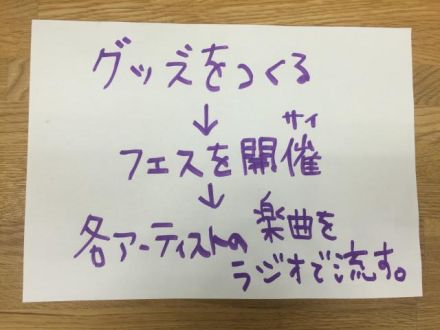 グッズをつくる
↓
サイ
フェスを開催
↓
各アーティストの楽曲を
ラジオで流す。